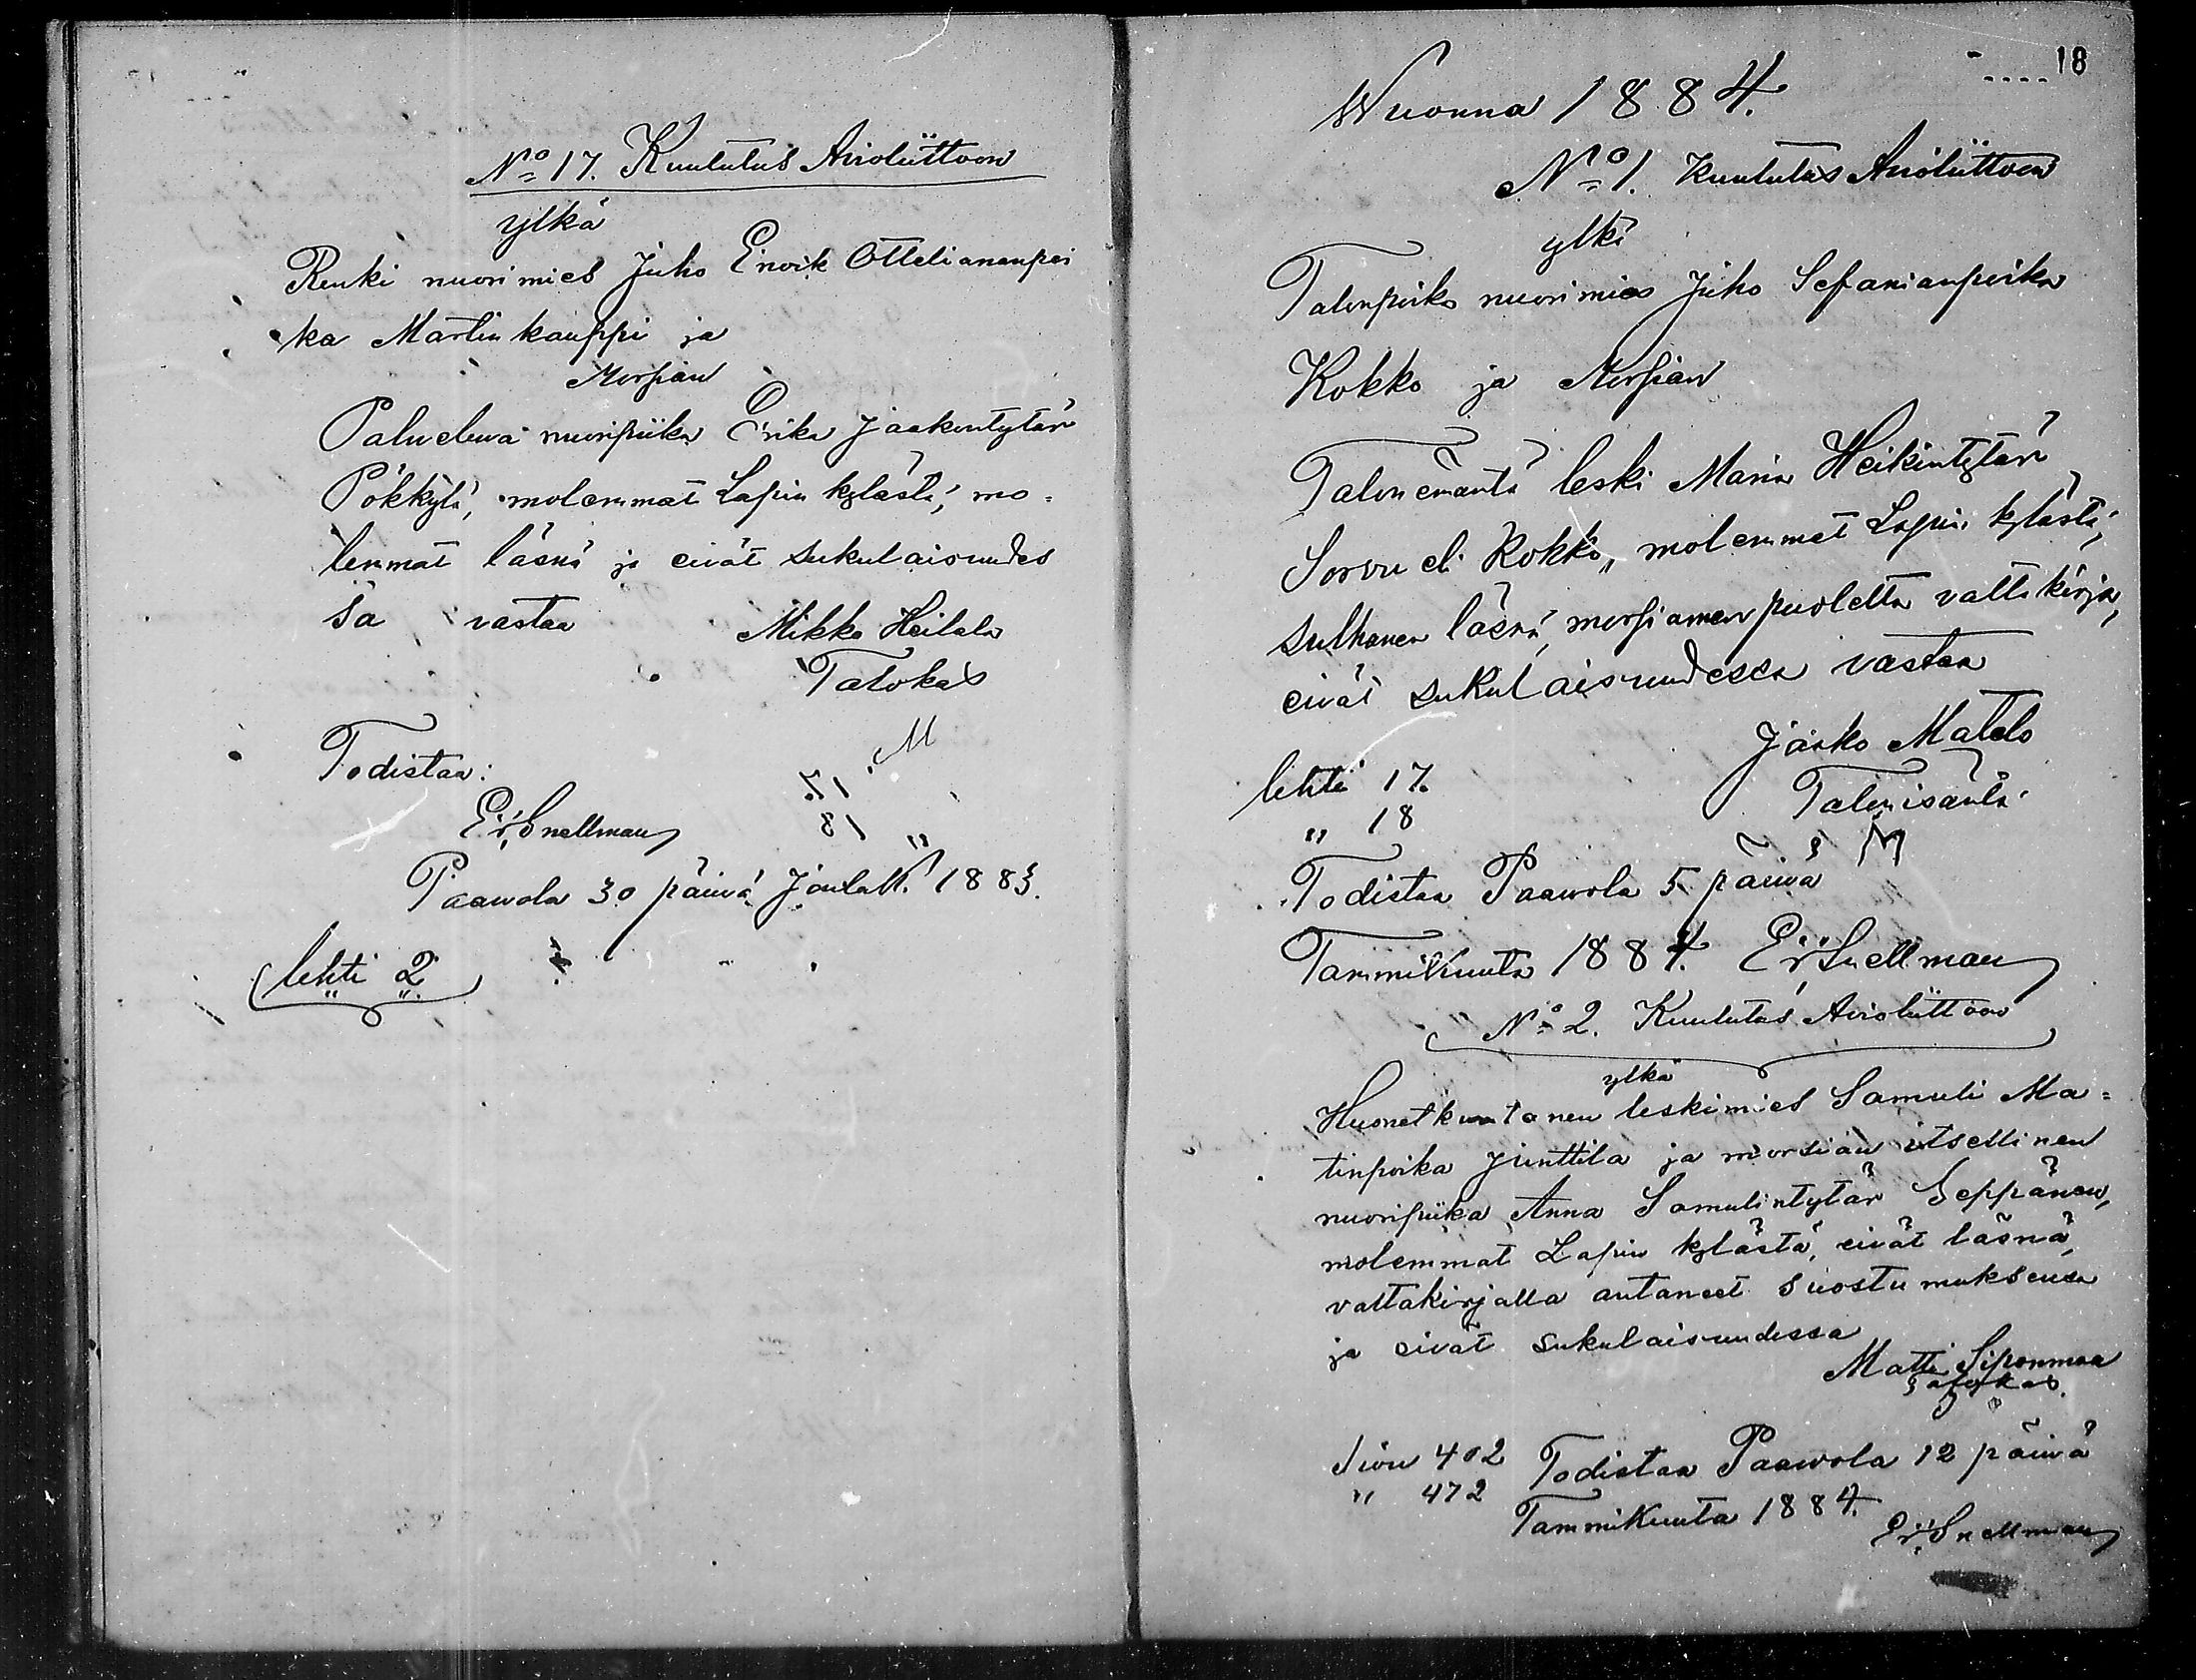 No 17. Kuulutus Avioliittoon
ylkä
Renki nuorimies Juho Eirvik Otteliananpoi
ka Martinkauppi ja
Morsian
Palveleva nuoripiika Erika Jaakontytär
Pökkylä, molemmat Lapin kylästä, mo-
lemmat läsnä ja eivät sukulaisuudes
sa vastaa Mikko Heilala
Talokas
Todistaa:
Er. Snellman
Paawola 30 päivä Joulukk. 1883.
lehti 2
18
Wuonna 1884.
No 1. Kuulutus Avioliittoon
ylkä
Talonpoika nuorimies Juho Sefanianpoika
Kokko ja Morsian
Talon emäntä leski Maria Heikintytär
Sorvu eli Kokko, molemmat Lapin kylästä,
sulhanen läsnä, morsiamen puoletta valtakirja,
eivät sukulaisuudessa vastaa
Jaako Matelo
lehti 17. Talonisäntä
" 18
Todistaa Paawola 5 päivä
Tammikuuta 1884. Er. Snellman
No 2. Kuulutus Avioliittoon
ylkä
Huonetkuntanen leskimies Samuli Ma-
tinpoika Junttila ja morsian itsellinen
nuoripiika Anna Samulintytär Seppänen,
molemmat Lapin kylästä, eivät läsnä,
valtakirjalla antaneet suostumuksensa
ja eivät sukulaisuudessa
Matti Siponmaa
talokas.
Sivu 402 Todistaa Paawola 12 päivä
" 472 Tammikuuta 1884.
Er. Snellman